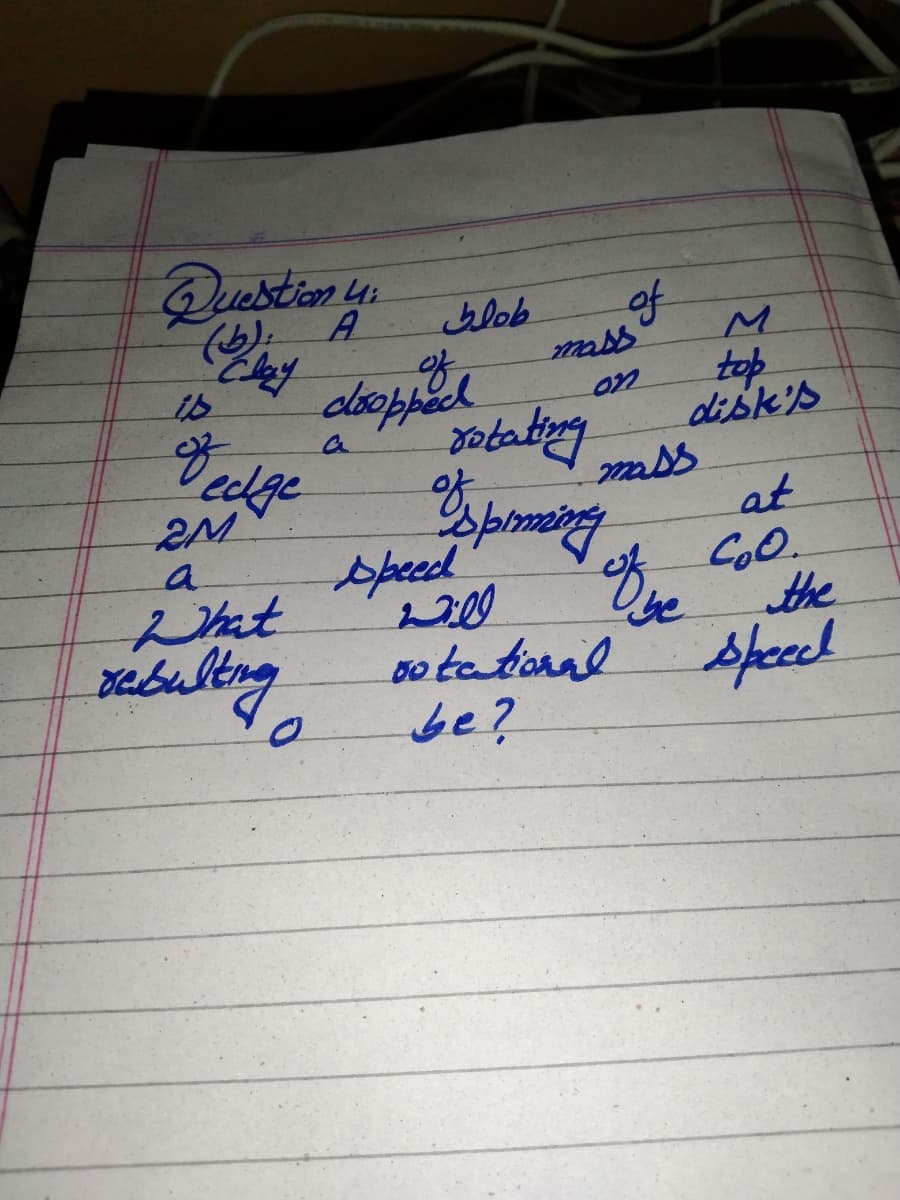 Question 4:
(b): A blob of
Clay of mass M
is dropped on top
of a rotating disk's
edge of mass
2M spinning at
a speed of C₀O.
What will be the
resulting rotational speed
O be?